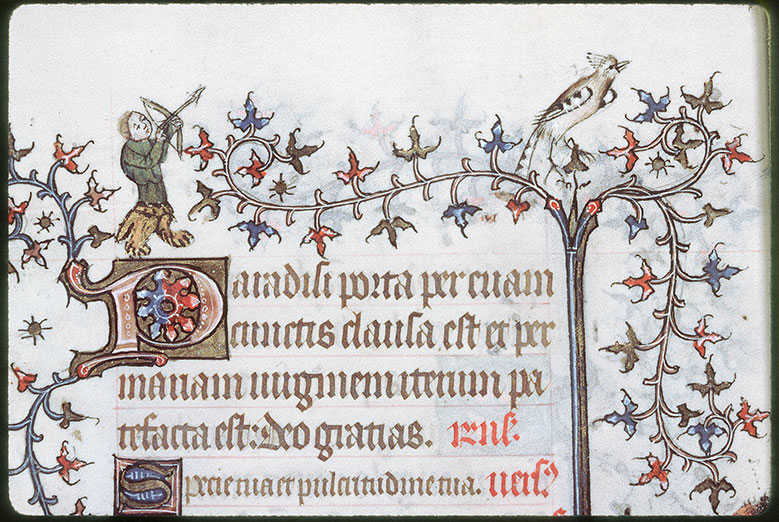 Paradisi porta per euam
cunctis clausa est et per
mariam uirginem iterum pa
tefacta est: deo gratias.
Specie tua et pulcritudine tua.